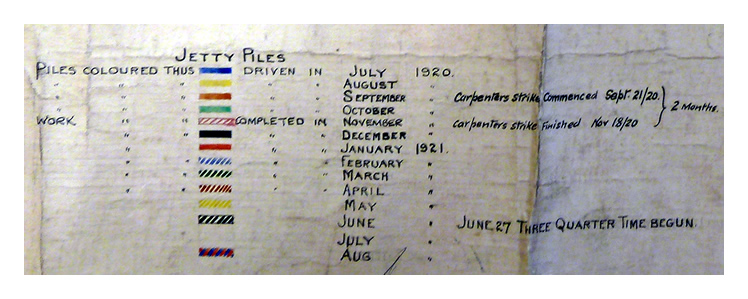 JETTY PILES
PILES COLOURED THUS DRIVEN IN JULY 1920.
" " " " " AUGUST "
" " " " " SEPTEMBER " Carpenters strike Commenced Sept 21/20.
" " " " " OCTOBER " 2 Months.
WORK " " COMPLETED IN NOVEMBER " Carpenters strike Finished Nov 18/20
" " " " DECEMBER "
" " " " JANUARY 1921.
" " " " FEBRUARY "
" " " " MARCH "
" " " " APRIL "
MAY "
JUNE " JUNE 27 THREE QUARTER TIME BEGUN.
JULY "
AUG "